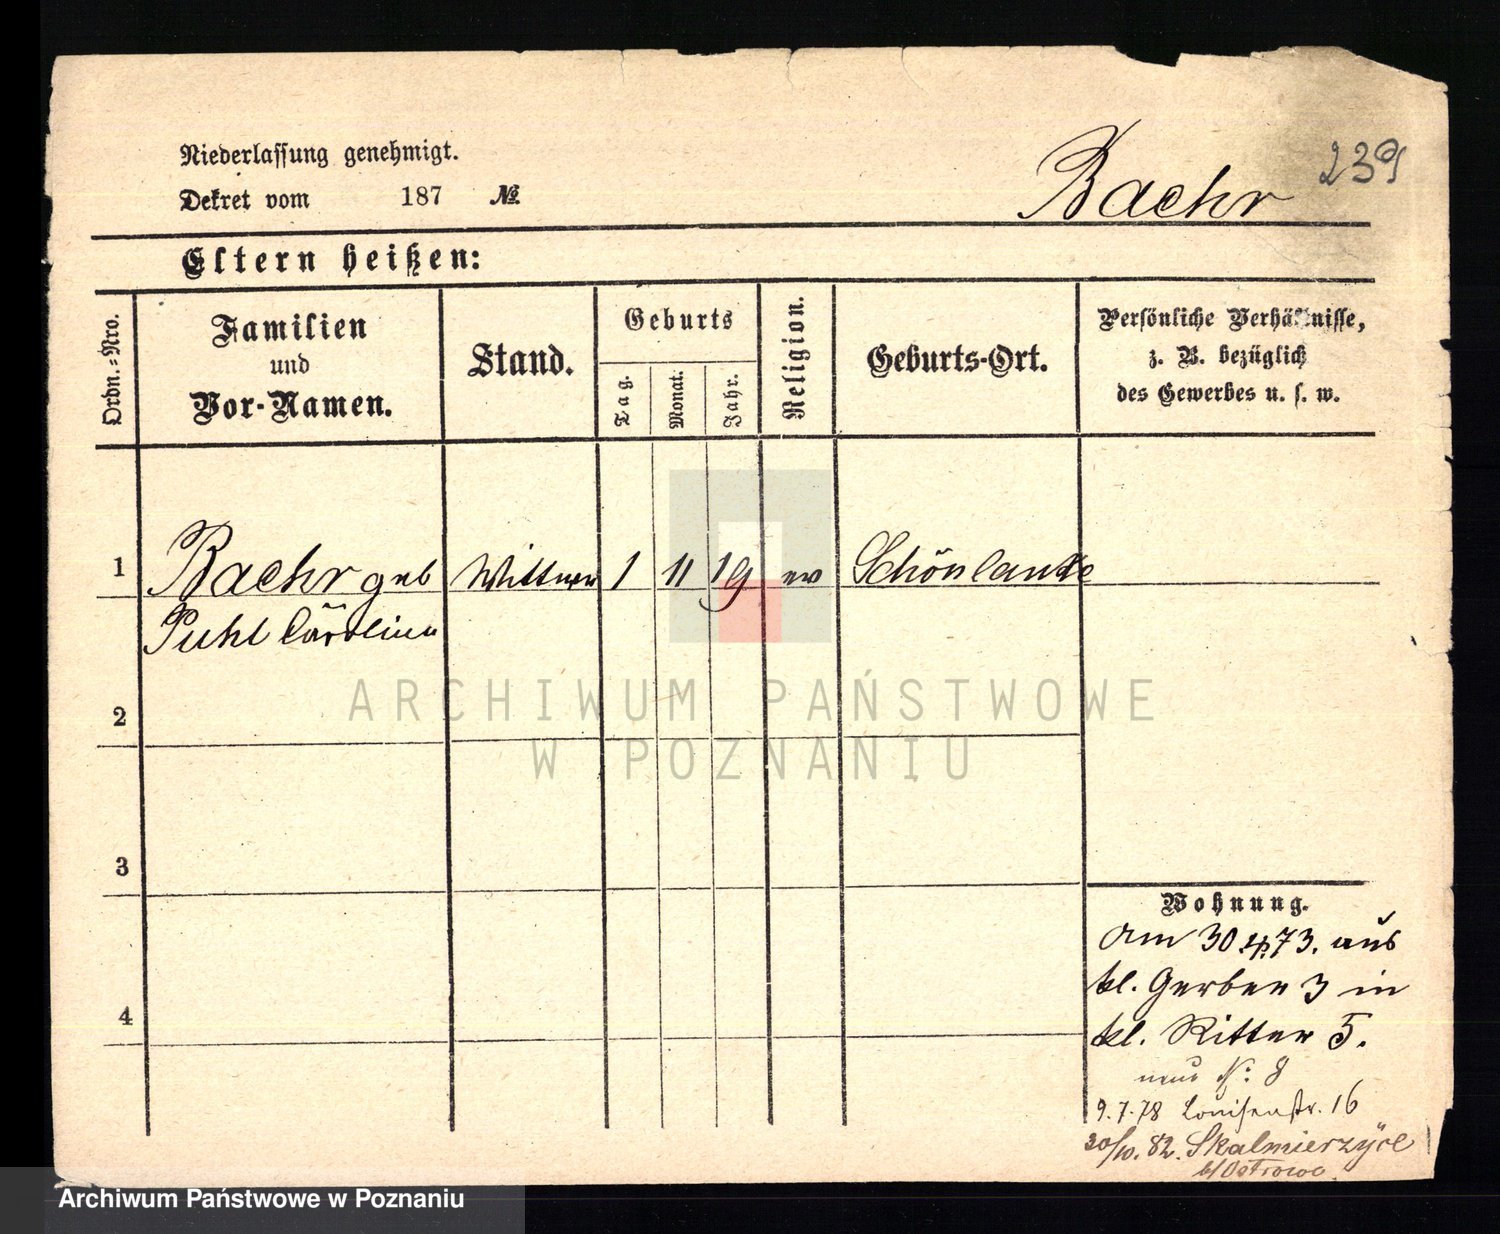 239
Niederlassung genehmigt.
Dekret vom 187 №
Baehr
Eltern heißen:
Ordn.-Nro.
Familien
und
Vor-Namen.
Stand.
Geburts
Tag.
Monat.
Jahr.
Religion.
Geburts-Ort.
Persönliche Verhältnisse,
z. B. bezüglich
des Gewerbes u. s. w.
1 Baehr geb Wittwe 1 11 19 ev Schönlanke
Puhl Caroline
2
3
4
Wohnung.
Am 30.4.73. aus
kl. Gerber 3 in
kl. Ritter 5.
neue N: 8
9.7.78 Louisenstr. 16
30/10. 82. Skalmierzyce
b/Ostrowo.
ARCHIWUM PAŃSTWOWE
W POZNANIU
Archiwum Państwowe w Poznaniu